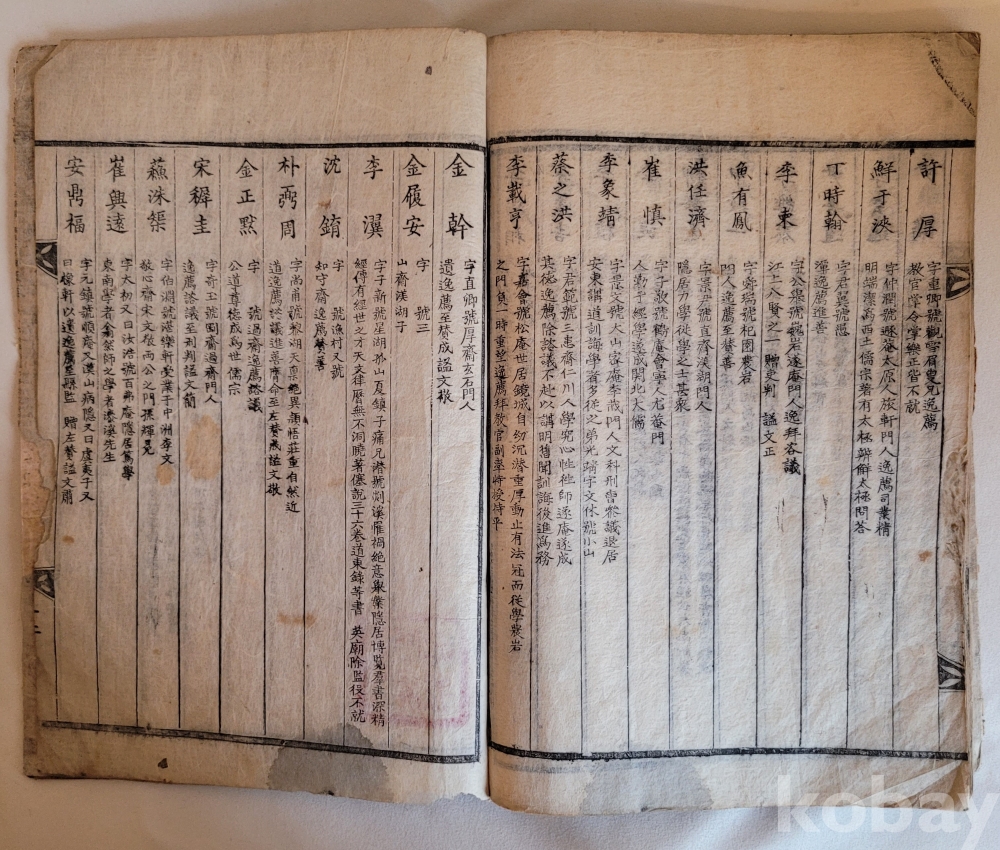 許厚
字重卿號觀雪有曳兄逸薦
教官掌令掌樂正皆不就
鮮于浹
字仲潤號遯菴太原人旅軒門人逸薦司業精
明端潔爲西土儒宗著有太極辨解太極問答
丁時翰
字君翼號愚
潭逸薦進善
李柬
字公擧號巍岩遂庵門人逸拜咨議
江上八賢之一 贈吏判 諡文正
魚有鳳
字舜瑞號杞園農岩
門人逸薦至贊善
洪任濟
字景尹號直齋渼湖門人
隱居力學從學之士甚衆
崔愼
字子敬號鶴庵會寧人尤菴門
人勤于經學遂成關北大儒
李象靖
字景文號大山客庵孝哉門人文科刑曹參議退居
安東講道訓誨學者多從之弟光靖字文休號小山
蔡之洪
字君範號三患齋仁川人學究心性師遂庵遂成
其德逸薦除諮議不赴以講明舊聞訓誨後進爲務
李載亨
字嘉會號松庵世居鏡城自幼沉潛重厚動止有法冠而從學農岩
之門負一時重望逸薦拜敎官副率特授侍平
金榦
字直卿號厚齋玄石門人
遺逸薦至贊成諡文敬
金履安
字 號三
山齋渼湖子
李瀷
字子新號星湖 山夏鎭子痛兄潛號剡溪罹禍絶意擧業隱居博覽羣書深精
經傳有經世之才天文律曆無不洞曉著僿說三十六卷道東錄等書 英廟除監役不就
沈錥
字 號漁村又號
知守齋逸薦贊善
朴弼周
字尚甫號黎湖天稟絶異穎悟莊重有然近
道逸薦諮議進善膺命至左贊成諡文敬
金正默
字 號過齋逸薦諮議
公道尊德成爲世儒宗
宋穉圭
字奇玉號剛齋過齋門人
逸薦諮議至刑判諡文簡
蘇洙榘
字伯淵號湛樂軒受業于中洲李文
敬心齋宋文敬兩公之門孫輝冕
崔興遠
字太初又曰汝浩號百弗庵隱居篤學
東南學者翕然師之學者漆溪先生
安鼎福
字元鎭號順庵又漢山病隱又曰虞夷子又
曰橡軒以遺逸薦至縣監 贈左贊諡文肅
kobay